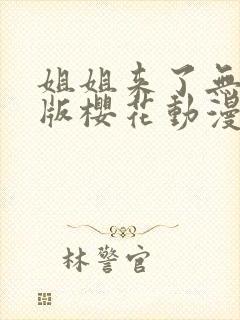 姐姐来了無
版櫻花動漫
林警官